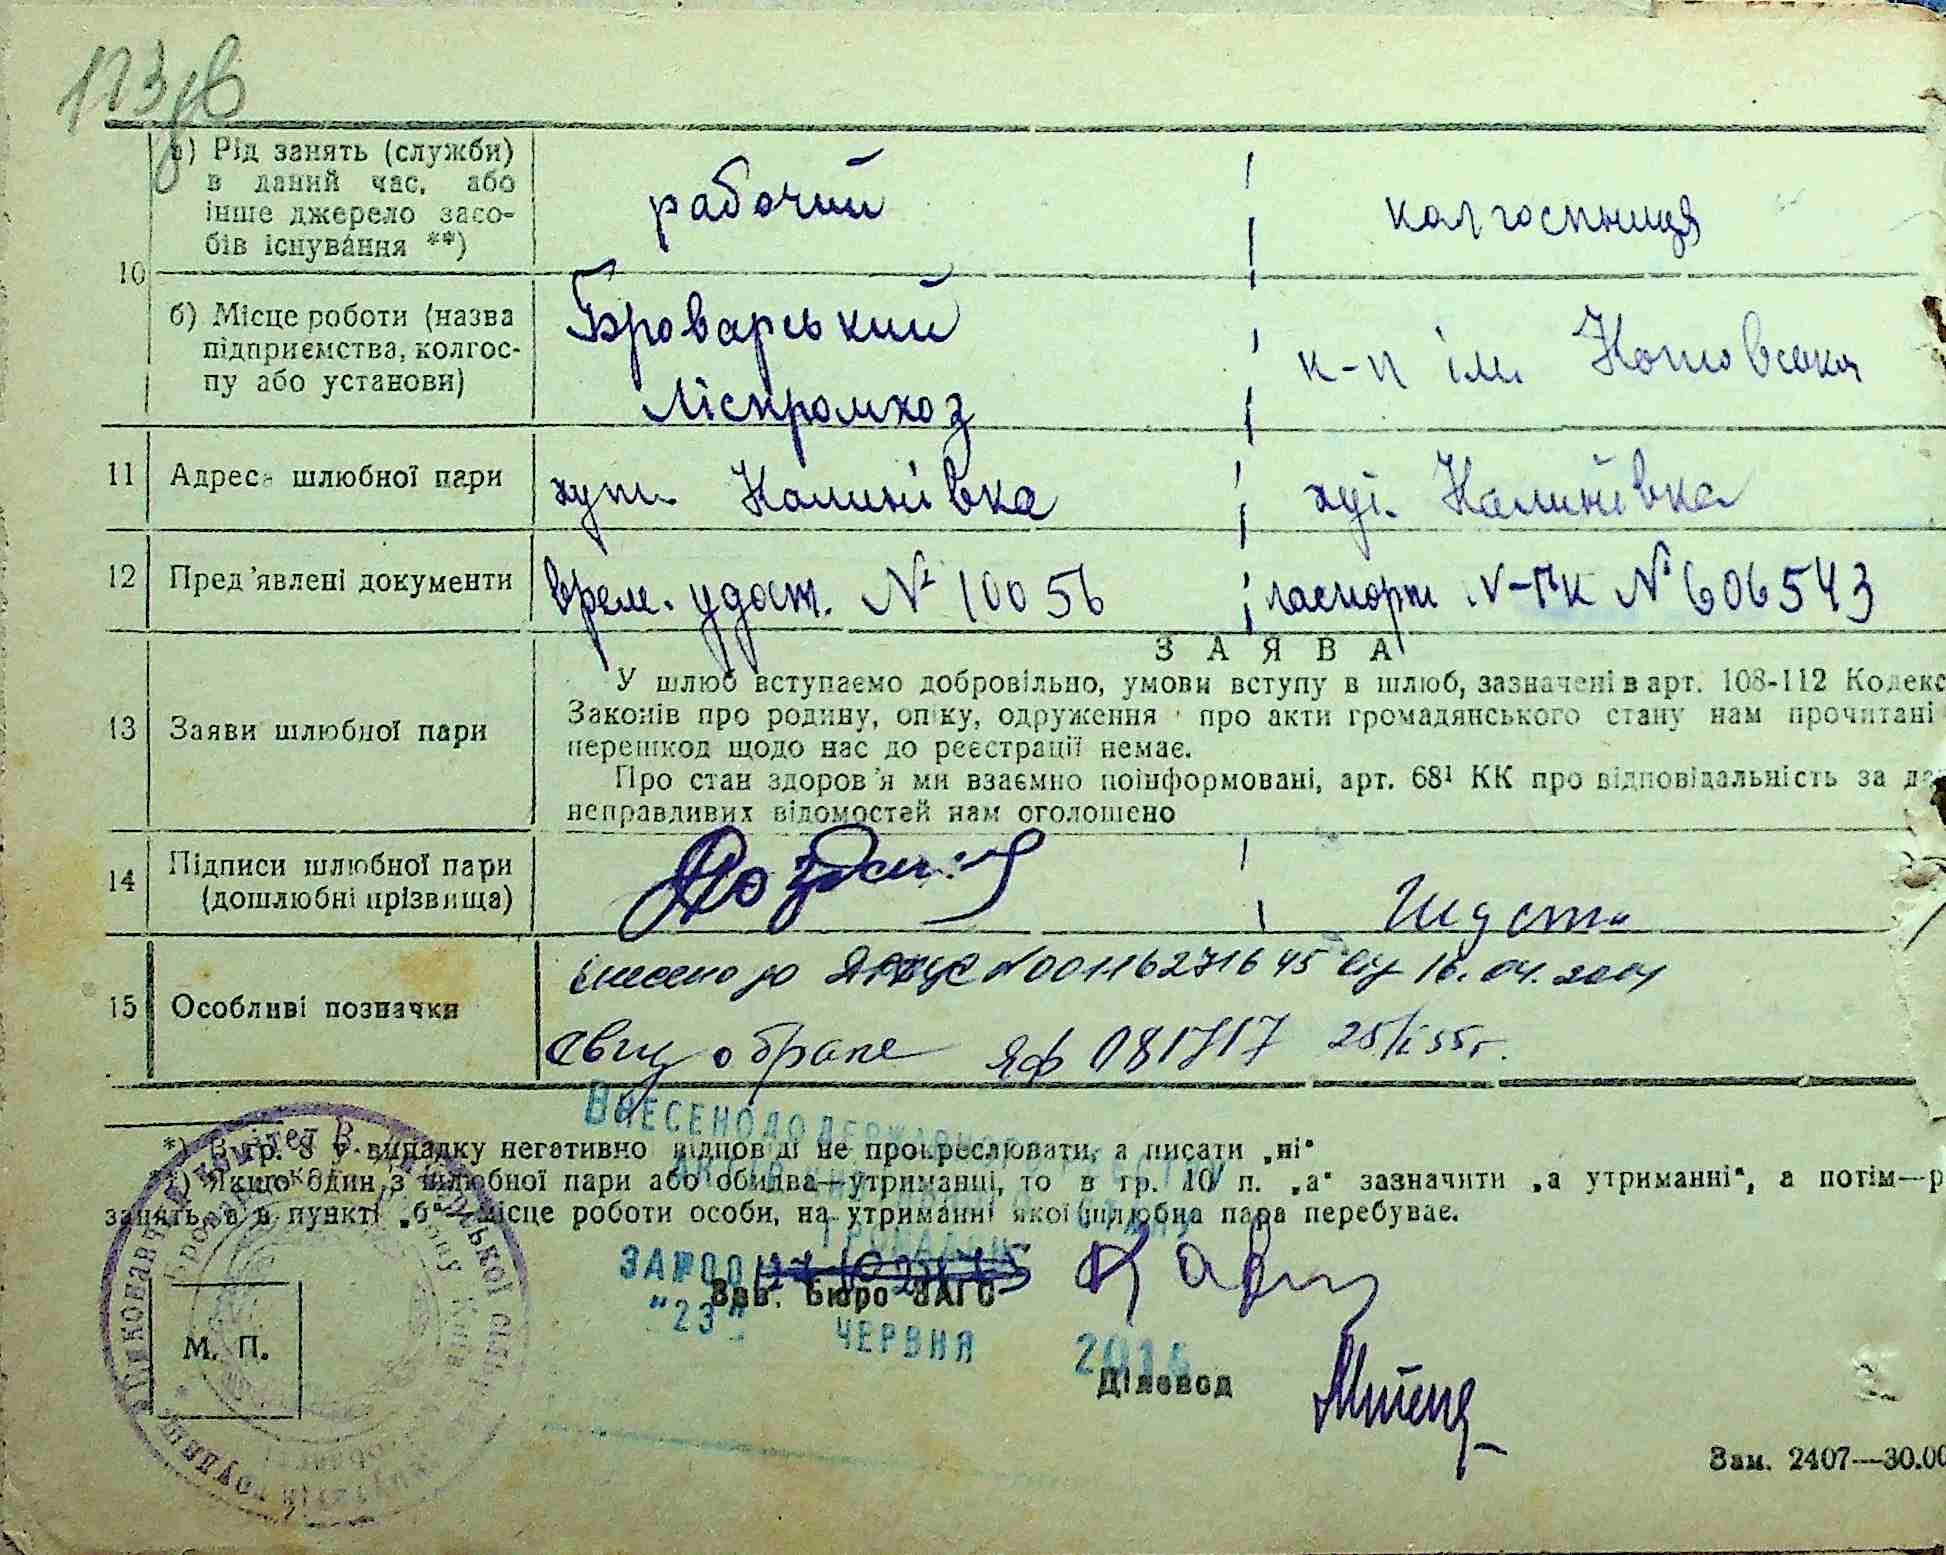 173зв
10
а) Рід занять (служби)
в даний час, або
інше джерело засо-
бів існування **)
рабочий
колгоспниця
б) Місце роботи (назва
підприємства, колгос-
пу або установи)
Броварський
Ліспромхоз
к-п ім.
11 Адреса шлюбної пари
хут. Калинівка
хут. Калинівка
12 Пред'явлені документи
врем. удост. № 10056
паспорт V-ГК № 606543
13 Заяви шлюбної пари
ЗАЯВА
У шлюб вступаємо добровільно, умови вступу в шлюб, зазначені в арт. 108-112 Кодекс
Законів про родину, опіку, одруження про акти громадянського стану нам прочитані
перешкод щодо нас до реєстрації немає.
Про стан здоров'я ми взаємно поінформовані, арт. 68¹ КК про відповідальність за да
неправливих відомостей нам оголошено
14 Підписи шлюбної пари
(дошлюбні прізвища)
15 Особливі позначки
внесено до №00116271645 від 16.04.2004
Свид о браке ЯФ 081717 25/I 55 г.
*) В гр. 8 у випадку негативно відповіді не прокреслювати, а писати „ні“
Якщо один з шлюбної пари або обидва—утриманці, то в гр. 10 п. „а“ зазначити „а утриманні“, а потім—р
занять, а в пункті „б“—місце роботи особи, на утриманні якої шлюбна пара перебуває.
ВНЕСЕНО ДО ДЕРЖАВНОГО РЕЄСТРУ
АКТІВ СТАНУ
ЗА №00
"23" ЧЕРВНЯ
Зав. Бюро ЗАГС
М. П.
Діловод
Зам. 2407—30.00